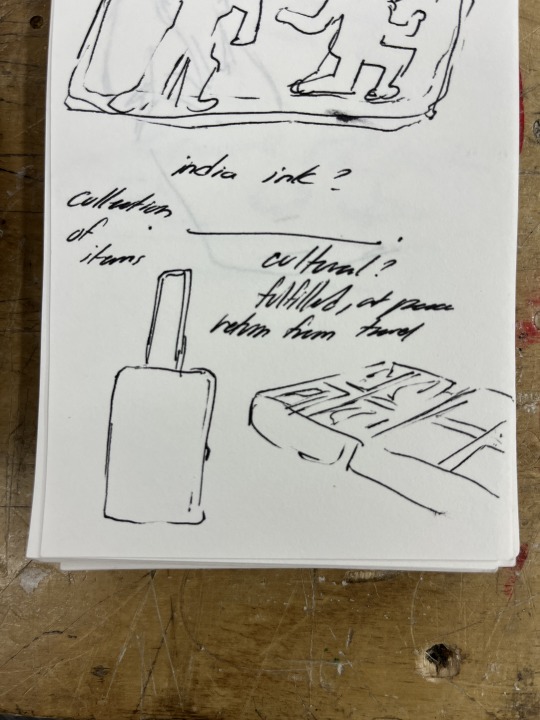 india ink?
collection
of
items
cultural?
fulfilled, at peace
return from travel